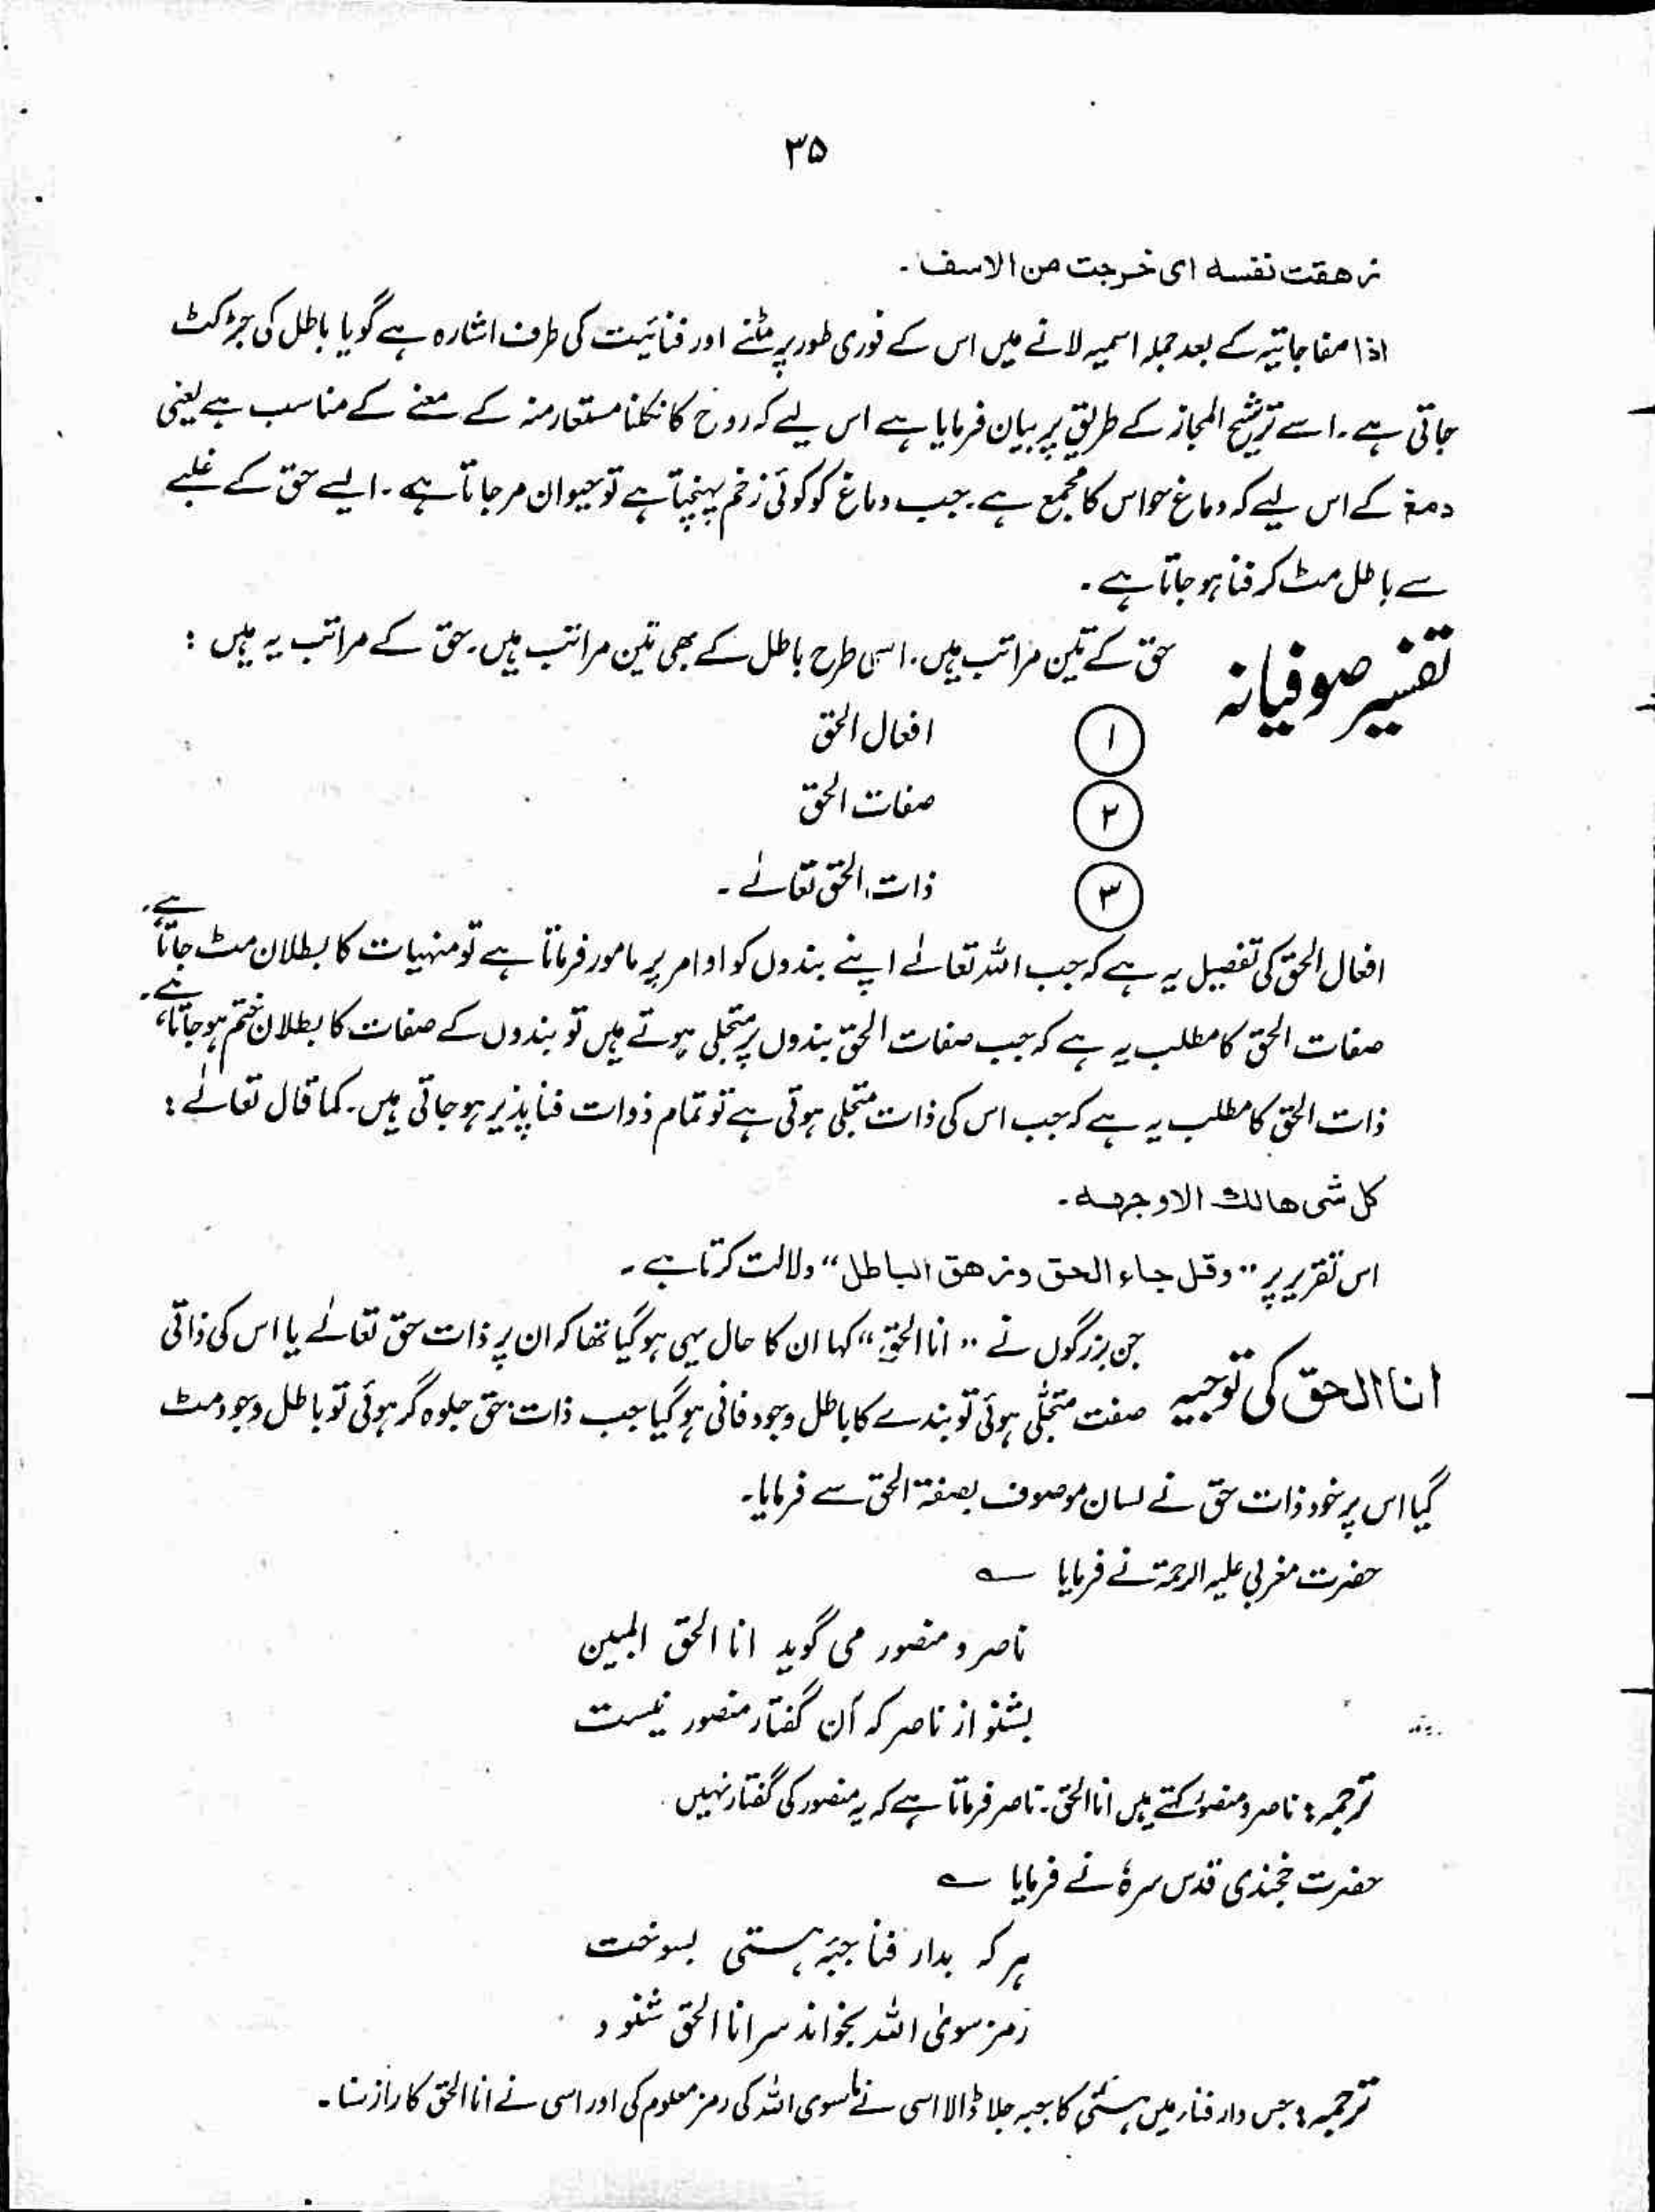 ۳۵
زهقت نفسه ای خرجت من الاسف۔
اذا مفاجاتیہ کے بعد جملہ اسمیہ لانے میں اس کے فوری طور پر مٹنے اور فنائیت کی طرف اشارہ ہے گویا باطل کی جڑ کٹ
جاتی ہے۔ اسے ترشیح المجاز کے طریق پر بیان فرمایا ہے اس لیے کہ روح کا نکلنا مستعار منہ کے معنے کے مناسب ہے یعنی
دمغہ کے اس لیے کہ دماغ حواس کا مجمع ہے۔ جب دماغ کو کوئی زخم پہنچتا ہے تو حیوان مر جاتا ہے۔ ایسے حق کے غلبے
سے باطل مٹ کر فنا ہو جاتا ہے۔
تفسیر صوفیانہ
حق کے تین مراتب ہیں۔ اسی طرح باطل کے بھی تین مراتب ہیں۔ حق کے مراتب یہ ہیں :
۱ افعال الحق
۲ صفات الحق
۳ ذات الحق تعالےٰ۔
افعال الحق کی تفصیل یہ ہے کہ جب اللہ تعالےٰ اپنے بندوں کو اوامر پر مامور فرماتا ہے تو منہیات کا بطلان مٹ جاتا ہے۔
صفات الحق کا مطلب یہ ہے کہ جب صفات الحق بندوں پر متجلی ہوتے ہیں تو بندوں کے صفات کا بطلان ختم ہو جاتا ہے۔
ذات الحق کا مطلب یہ ہے کہ جب اس کی ذات متجلی ہوتی ہے تو تمام ذوات فنا پذیر ہو جاتی ہیں۔ کما قال تعالےٰ :
کل شی هالك الا وجهه۔
اس تقریر پر "وقل جاء الحق وزهق الباطل" دلالت کرتا ہے۔
انا الحق کی توجیہ
جن بزرگوں نے "انا الحق" کہا ان کا حال یہی ہو گیا تھا کہ ان پر ذات حق تعالےٰ یا اس کی ذاتی
صفت متجلّی ہوئی تو بندے کا باطل وجود فانی ہو گیا جب ذات حق جلوہ گر ہوئی تو باطل وجود مٹ
گیا اس پر خود ذات حق نے لسان موصوف بصفۃ الحق سے فرمایا۔
حضرت مغربی علیہ الرحمۃ نے فرمایا ؎
ناصر و منصور می گوید انا الحق المبین
بشنو از ناصر کہ آن گفتار منصور نیست
ترجمہ : ناصر و منصور کہتے ہیں انا الحق۔ ناصر فرماتا ہے کہ یہ منصور کی گفتار نہیں۔
حضرت خجندی قدس سرہٗ نے فرمایا ؎
ہر کہ بدار فنا جبّہ ہستی بسوخت
رمز سوی اللہ بخواند سر انا الحق شنود
ترجمہ : جس دار فناء میں ہستی کا جبہ جلا ڈالا اسی نے ماسوی اللہ کی رمز معلوم کی اور اسی نے انا الحق کا راز سنا۔